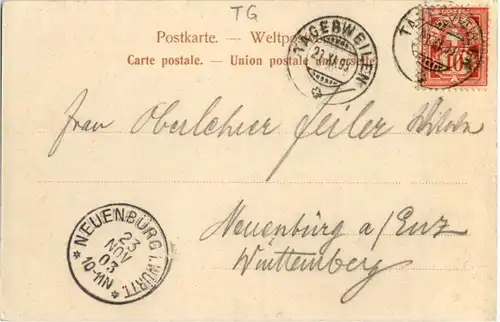 TG
Postkarte. — Weltpost
Carte postale. — Union postale universelle
TÄGERWEILEN
Frau Oberlehrer Feiler Witwe
Neuenbürg a/Enz
Württemberg
NEUENBÜRG i. WÜRTT
23
NOV
03
10-11N
10